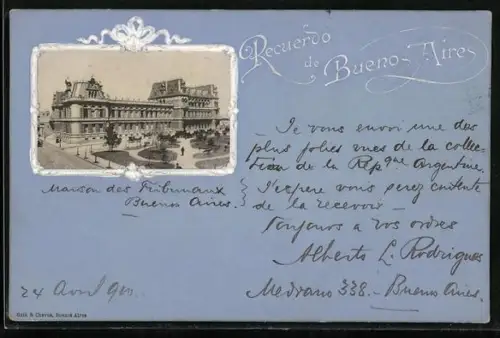 Recuerdo
de Buenos-Aires
- Je vous envoi une des
plus jolies vues de la collec-
tion de la Répque Argentine.
J'espere vous serez contente
de la recevoir -
Toujours a vos ordres
Alberto L. Rodrigues
Medrano 338. - Buenos Aires.
Maison des Tribunaux
Buenos Aires.
24 Avril 900
& Buenos Aires